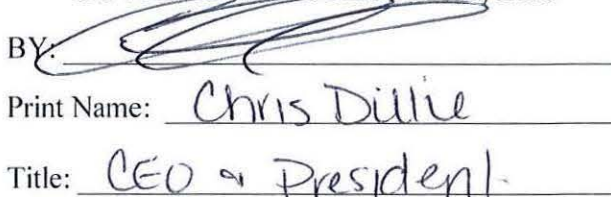 BY:
Print Name: Chris Dillie
Title: CEO & President